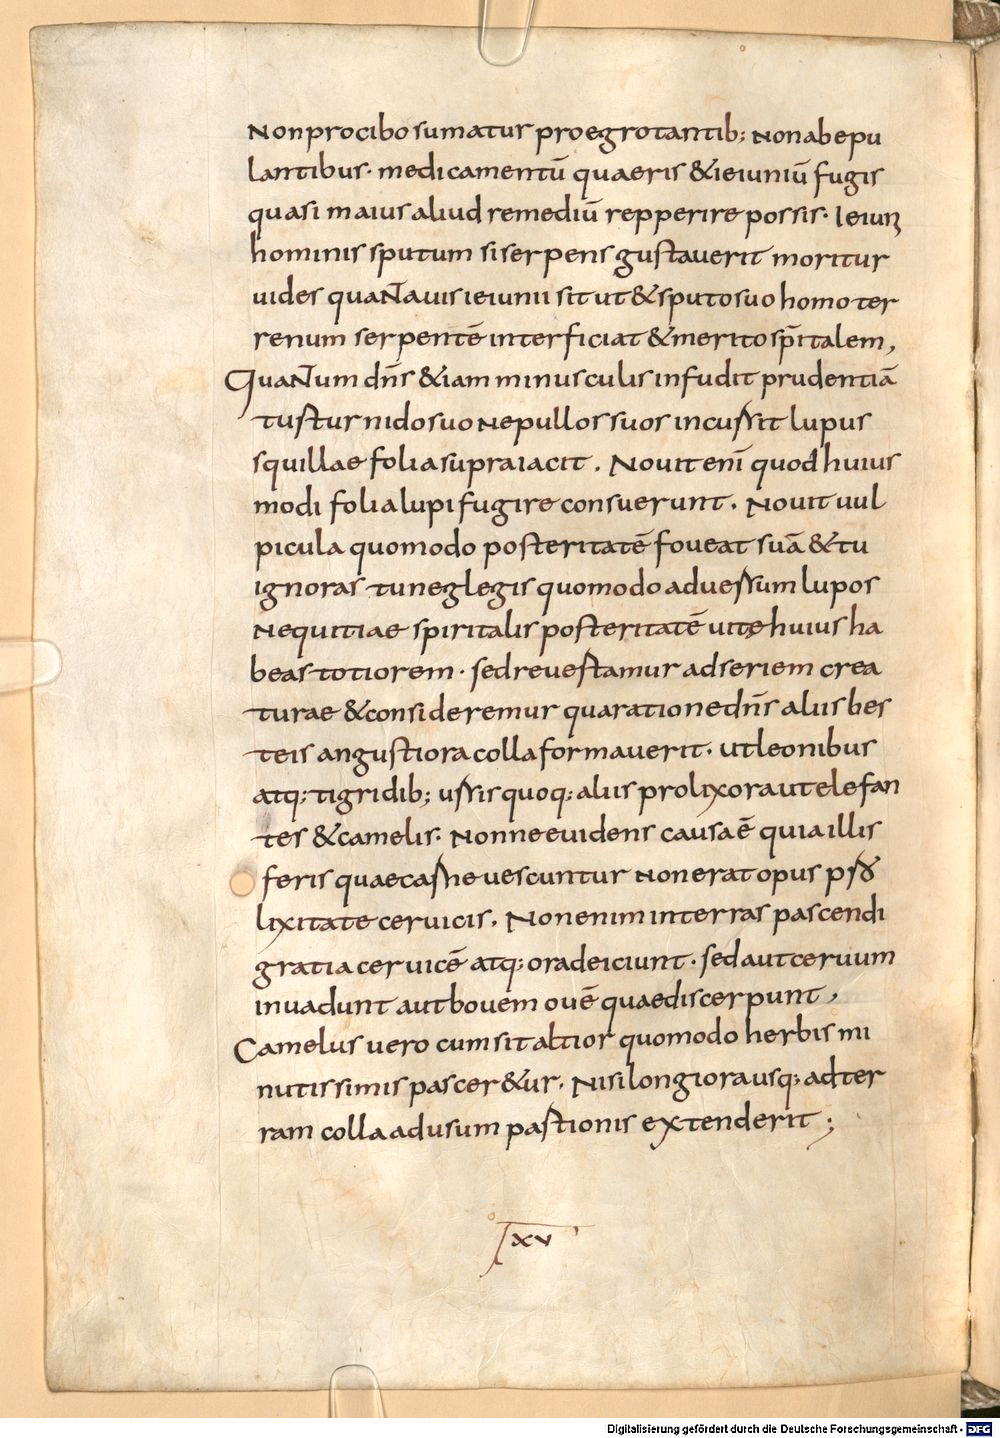 Non pro cibo sumatur pro egrotantib; Non ab epu
lantibus· medicamentū quaeris & ieiuniū fugis
quasi maius aliud remediū repperire possis· Ieiun
hominis sputum si serpens gustauerit moritur
uides quanta uis ieiunii sit ut & sputo suo homo ter
renum serpentē interficiat & merito sp̄italem,
Quantum dn̄s &iam minusculis infudit prudentiā
tustur nido suo ne pullos suos incussit lupus
squillae folia supra iacit. Nouit enī quod huius
modi folia lupi fugire consuerunt. Nouit uul
picula quomodo posteritatē foueat suā & tu
ignoras tu neglegis quomodo aduessum lupos
nequitiae spiritalis posteritatē uitę huius ha
beas totiorem· sed reuestamur ad seriem crea
turae & consideremur qua ratione dn̄s aliis bes
teis angustiora colla formauerit. ut leonibus
atq; tigridib; ussis quoq; aliis prolixora ut elefan
tes & camelis. Nonne euidens causa ē quia illis
feris quae casne uescuntur non erat opus
lixitate ceruicis. Non enim in terras pascendi
gratia ceruicē atq; ora deiciunt. sed aut ceruum
inuadunt aut bouem ouē quae discerpunt,
Camelus uero cum sit altior quomodo herbis mi
nutissimis pascer&ur. Nisi longiora usq; ad ter
ram colla ad usum pastionis extenderit;
xv
Digitalisierung gefördert durch die Deutsche Forschungsgemeinschaft - DFG